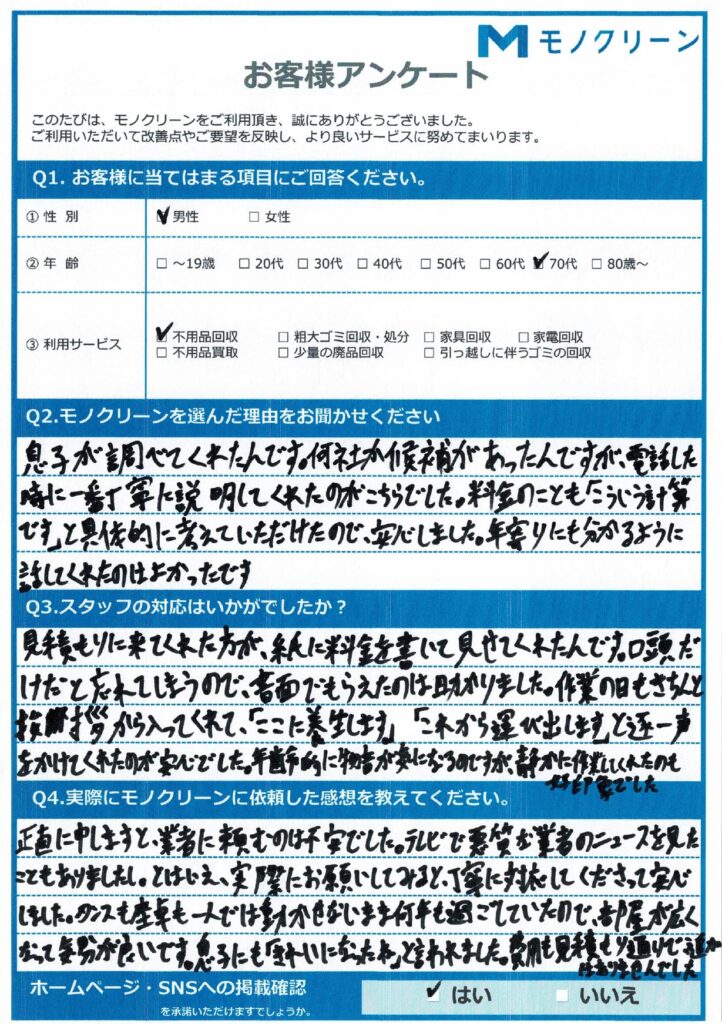 モノクリーン
お客様アンケート
このたびは、モノクリーンをご利用頂き、誠にありがとうございました。
ご利用いただいて改善点やご要望を反映し、より良いサービスに努めてまいります。
Q1. お客様に当てはまる項目にご回答ください。
① 性 別 ☑ 男性 □ 女性
② 年 齢 □ ～19歳 □ 20代 □ 30代 □ 40代 □ 50代 □ 60代 ☑ 70代 □ 80歳～
③ 利用サービス
☑ 不用品回収 □ 粗大ゴミ回収・処分 □ 家具回収 □ 家電回収
□ 不用品買取 □ 少量の廃品回収 □ 引っ越しに伴うゴミの回収
Q2.モノクリーンを選んだ理由をお聞かせください
息子が調べてくれたんです。何社か候補があったんですが、電話した
時に一番丁寧に説明してくれたのがこちらでした。料金のことも「こういう計算
です」と具体的に考えていただけたので、安心しました。年寄りにも分かるように
話してくれたのはよかったです
Q3.スタッフの対応はいかがでしたか？
見積もりに来てくれた方が、紙に料金を書いて見せてくれたんです。口頭だ
けだと忘れてしまうので、書面でもらえたのは助かりました。作業の日もきちんと
挨拶から入ってくれて、「ここに養生します」「これから運び出します」と逐一声
をかけてくれたのが安心でした。年齢的に物音が気になるのですが、静かに作業してくれたのも
好印象でした
Q4.実際にモノクリーンに依頼した感想を教えてください。
正直に申しますと、業者に頼むのは不安でした。テレビで悪質な業者のニュースを見た
こともありましたし。とはいえ、実際にお願いしてみると、丁寧に対応してくださって安心
しました。タンスも座卓も一人では動かせないまま何年も過ごしていたので、部屋が広く
なって気分が良いです。息子にも「きれいになったね」と言われました。費用も見積もり通りで追加
はありませんでした
ホームページ・SNSへの掲載確認
を承諾いただけますでしょうか。
☑ はい □ いいえ